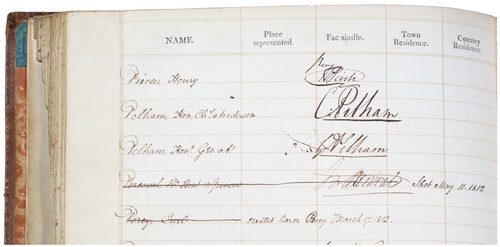 NAME. Place represented. Fac simile. Town Residence. Country Residence.
Peirse, Henry
Pelham, Hon. Chs. Anderson C Pelham
Pelham Honl. Geo. A. Pelham
Perceval Rt. Hon. Spencer Sp Perceval Shot May 11. 1812
Percy Earl created Baron Percy March 17. 1812.